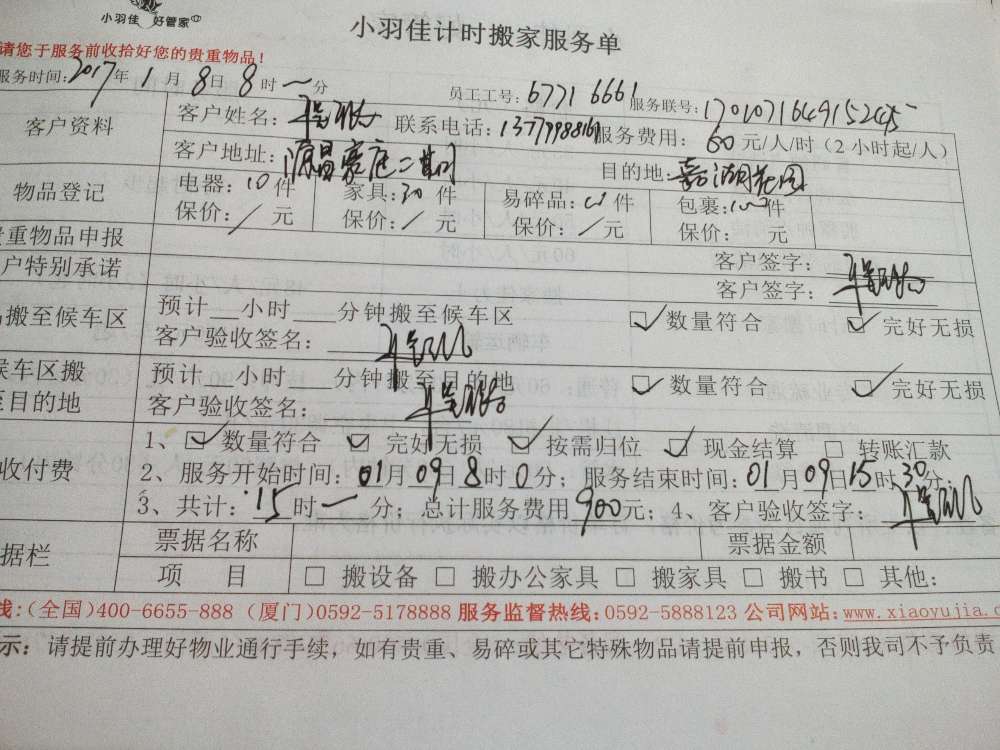 小羽佳 好管家
小羽佳计时搬家服务单
请您于服务前收拾好您的贵重物品!
服务时间:2017年1月8日8时一分 员工工号:6771 6661 服务联号:
客户资料 客户姓名: 联系电话: 服务费用:60元/人/时(2小时起/人)
客户地址:源昌豪庭二期 目的地:嘉湖花园
物品登记 电器:10件 家具:20件 易碎品: 件 包裹: 件
保价:/元 保价:/元 保价:/元 保价: 元
贵重物品申报 客户签字:
户特别承诺 客户签字:
搬至候车区 预计___小时____分钟搬至候车区 ☑数量符合 ☑完好无损
客户验收签名:
候车区搬 预计___小时____分钟搬至目的地 ☑数量符合 ☑完好无损
至目的地 客户验收签名:
收付费 1、☑数量符合 ☑完好无损 ☑按需归位 ☑现金结算 □转账汇款
2、服务开始时间:01月09日8时0分;服务结束时间:01月09日15时30分;
3、共计:15时一分;总计服务费用900元;4、客户验收签字:
据栏 票据名称 票据金额
项 目 □ 搬设备 □ 搬办公家具 □ 搬家具 □ 搬书 □ 其他:
线:(全国)400-6655-888 (厦门)0592-5178888 服务监督热线:0592-5888123 公司网站:www.xiaoyujia.c
示:请提前办理好物业通行手续,如有贵重、易碎或其它特殊物品请提前申报,否则我司不予负责